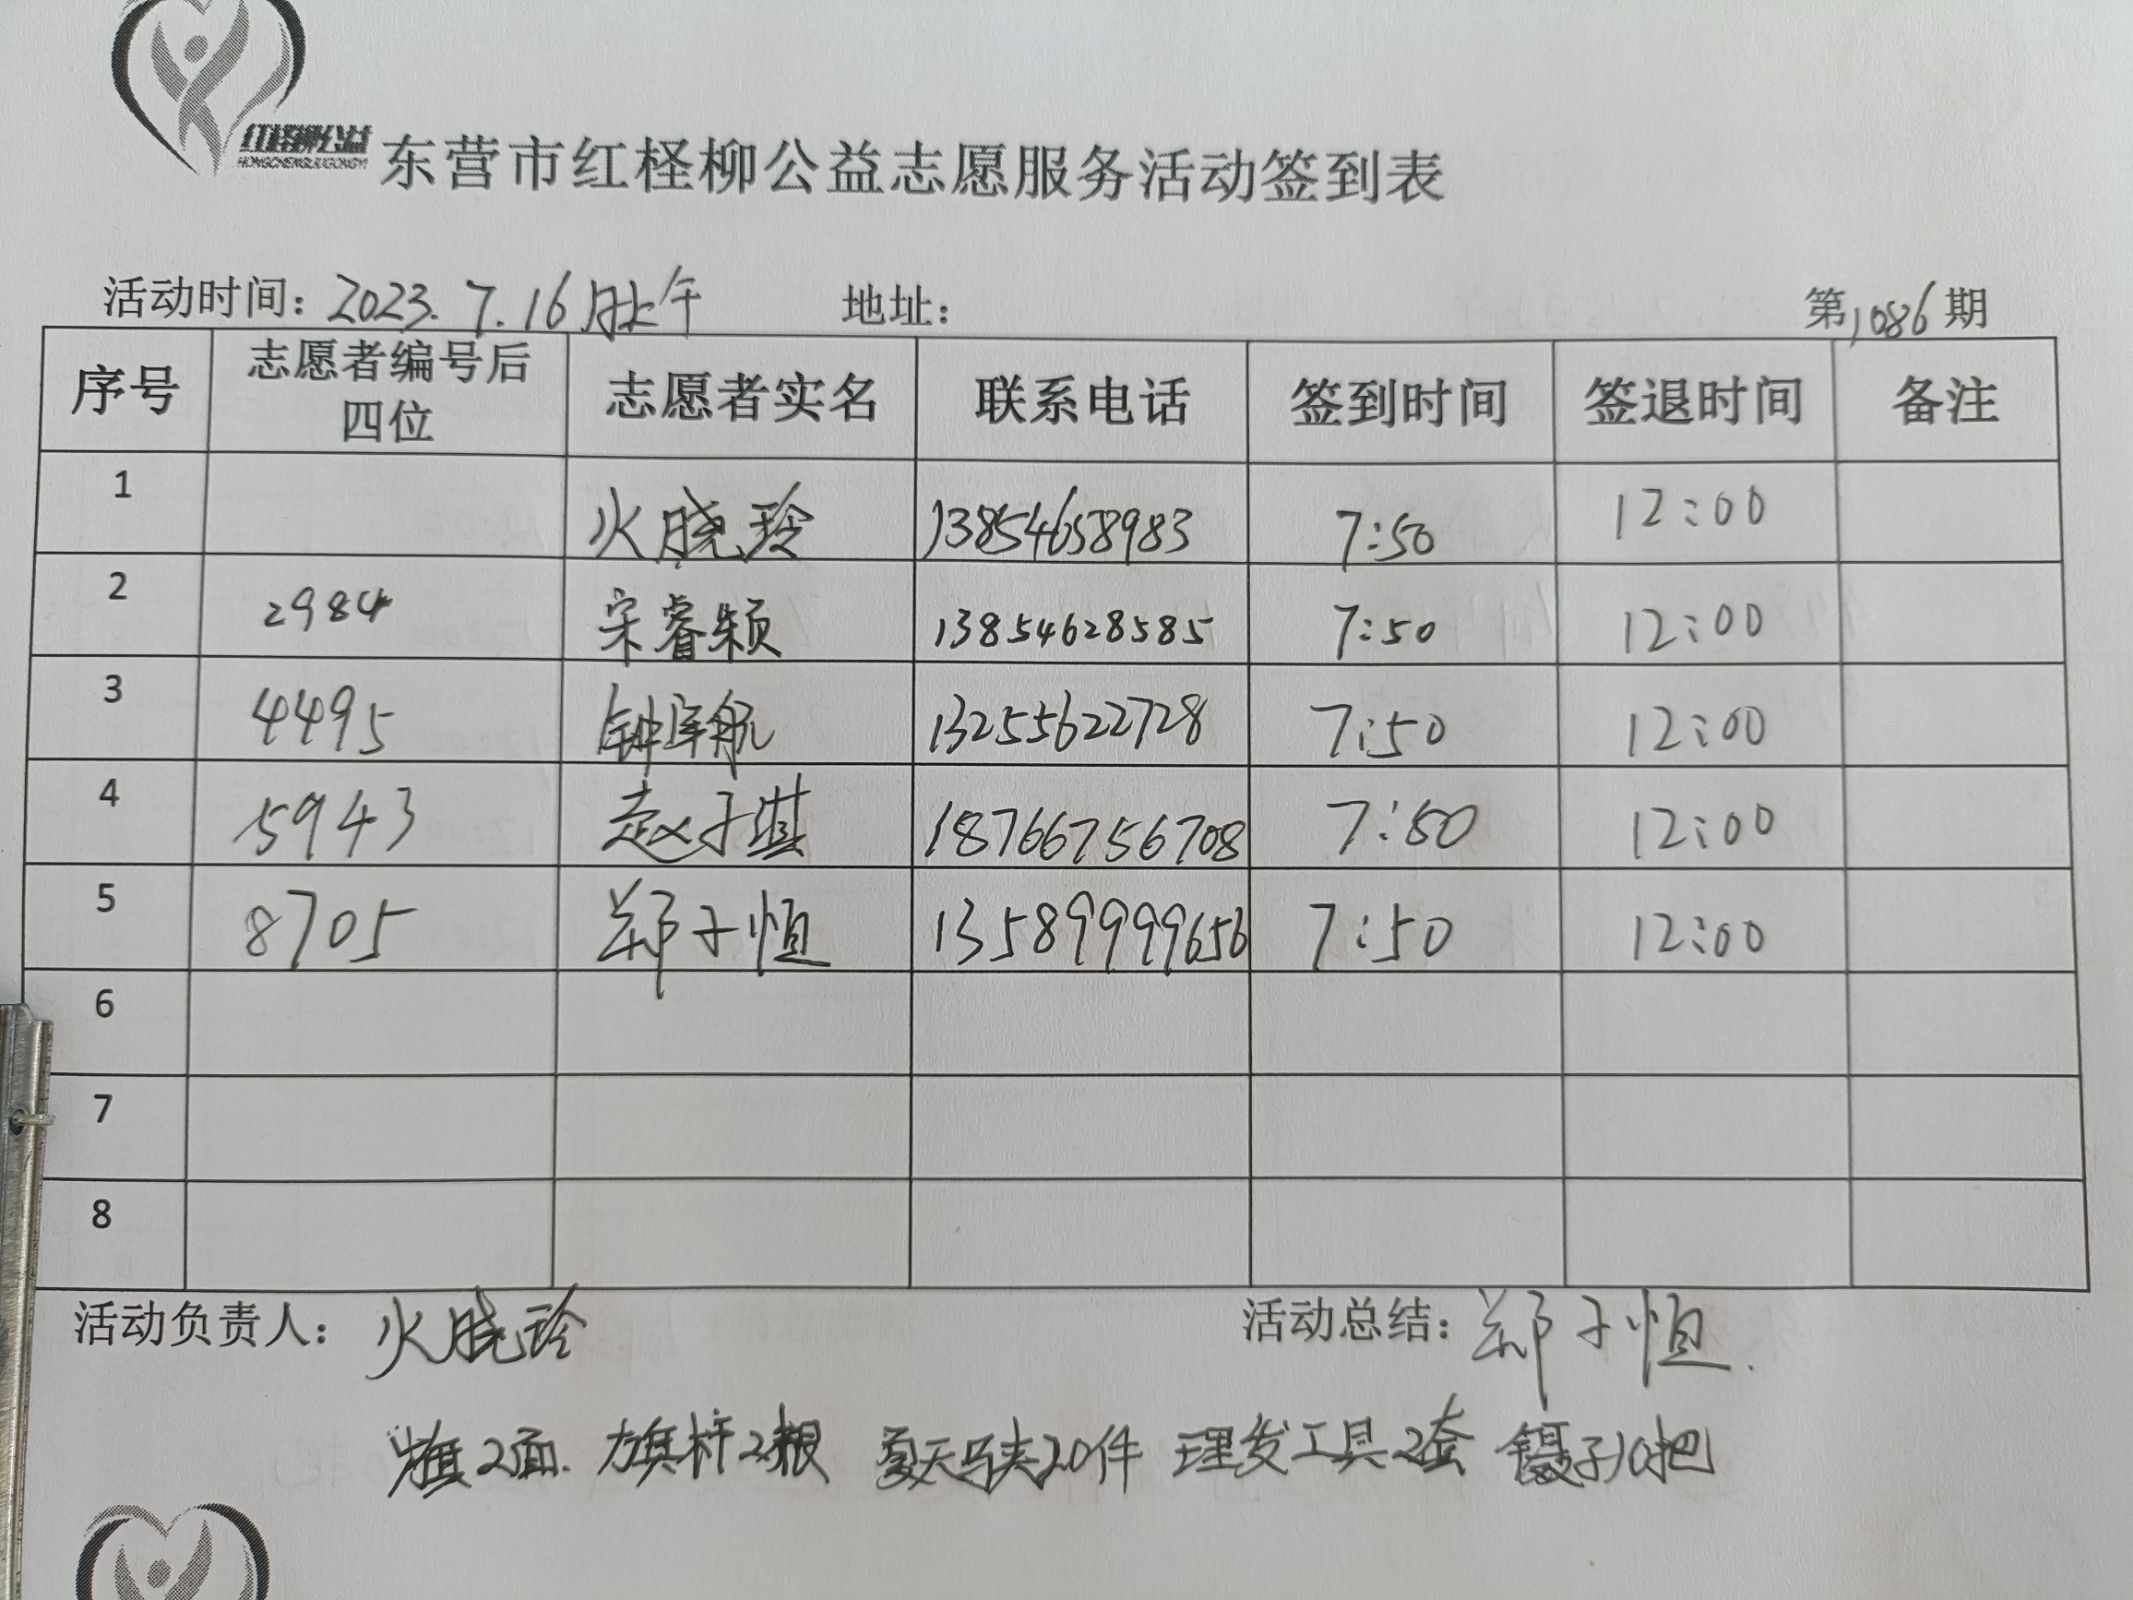 红柽柳公益
HONGCHENGLIUGONGYI
东营市红柽柳公益志愿服务活动签到表
活动时间：2023.7.16日上午 地址： 第1086期
序号 志愿者编号后四位 志愿者实名 联系电话 签到时间 签退时间 备注
1 火晓玲 13854658983 7:50 12:00
2 2984 宋睿颖 13854628585 7:50 12:00
3 4495 钟宇航 13255622728 7:50 12:00
4 5943 赵子淇 18766756708 7:50 12:00
5 8705 郑子恒 13589999656 7:50 12:00
6
7
8
活动负责人：火晓玲 活动总结：郑子恒.
旗2面. 旗杆2根 夏天马夹20件 理发工具2套 镊子10把